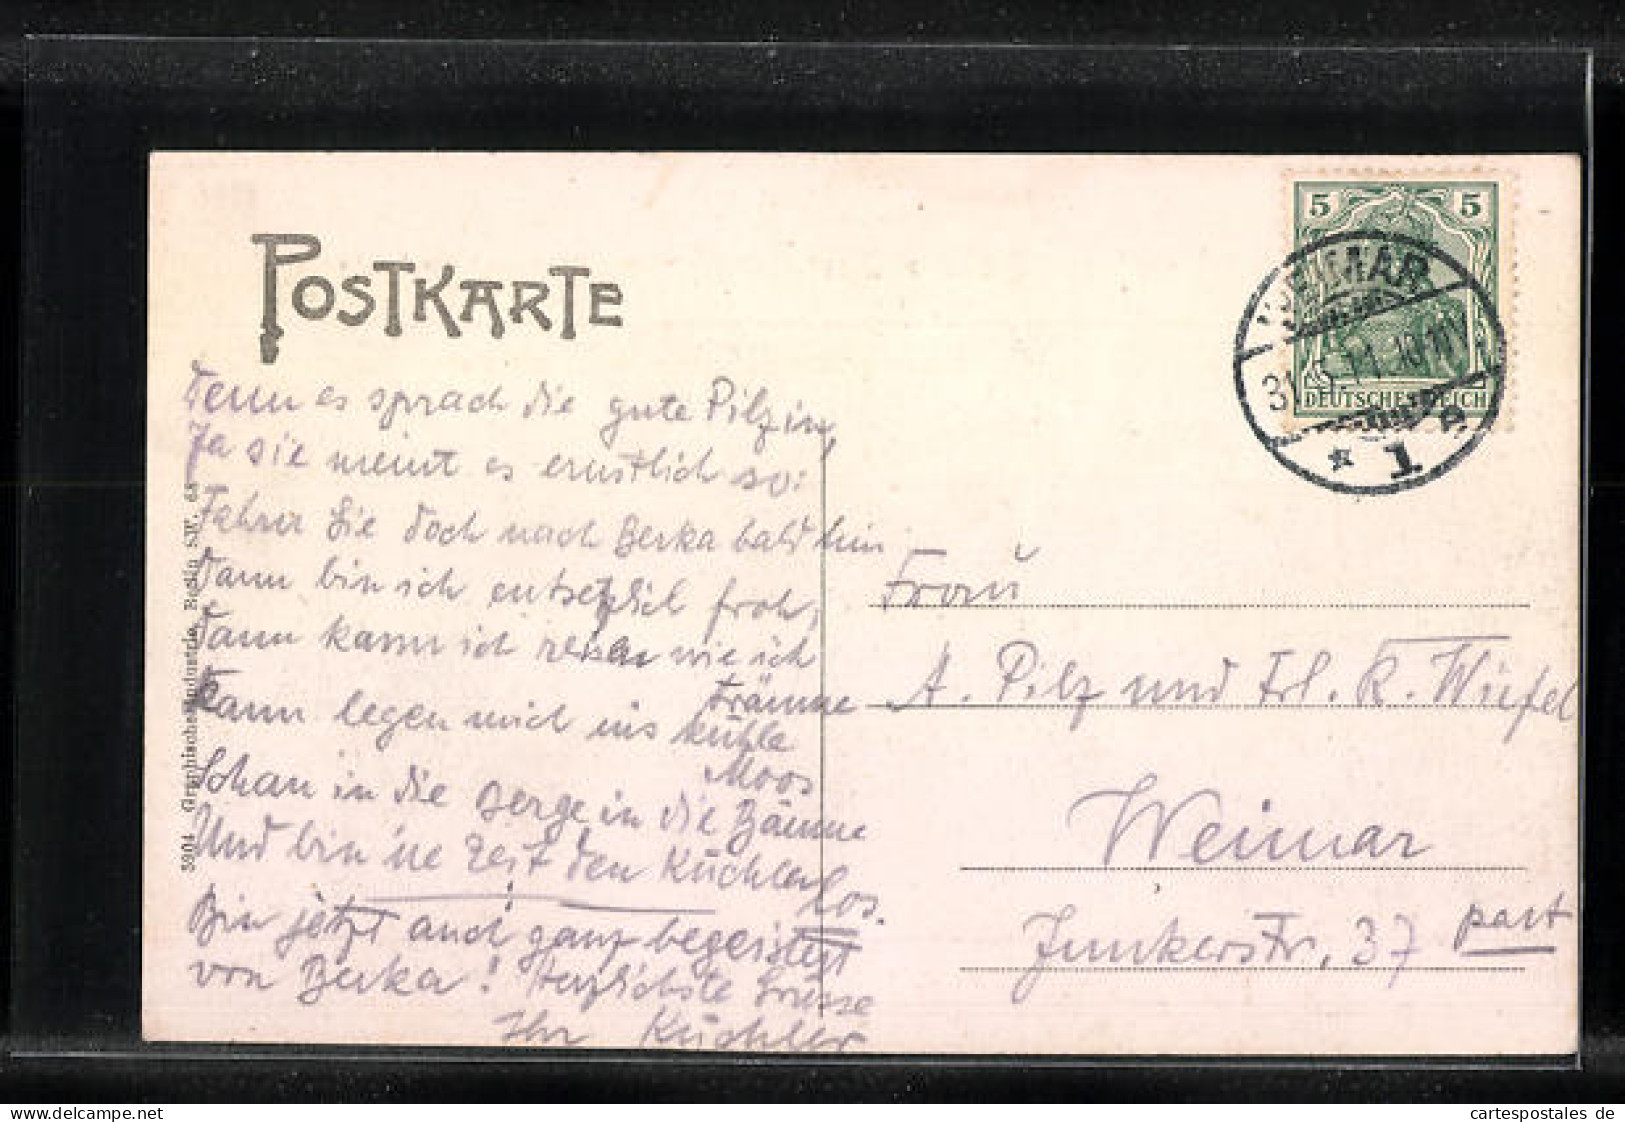 POSTKARTE
Denn es sprach die gute Pilzin,
Ja sie meint es ernstlich so:
Fahren Sie doch nach Berka bald hin
Dann bin ich entsetzlich froh,
Dann kann ich reisen wie ich
Träume
Kann legen mich ins kühle
Moos
Schau in die Berge in die Bäume
Und bin ne Zeit den Küchler
los.
Bin jetzt auch ganz begeistert
von Berka! Herzlichste Grüsse
Ihr Küchler
5904 Graphische Industrie, Berlin SW. 68
5 5
WEIMAR
31.5.11.10-11V
DEUTSCHES REICH
* 1 e
Frau
A. Pilz und Frl. K. Wiefel
Weimar
Junkerstr. 37 part
cartespostales de